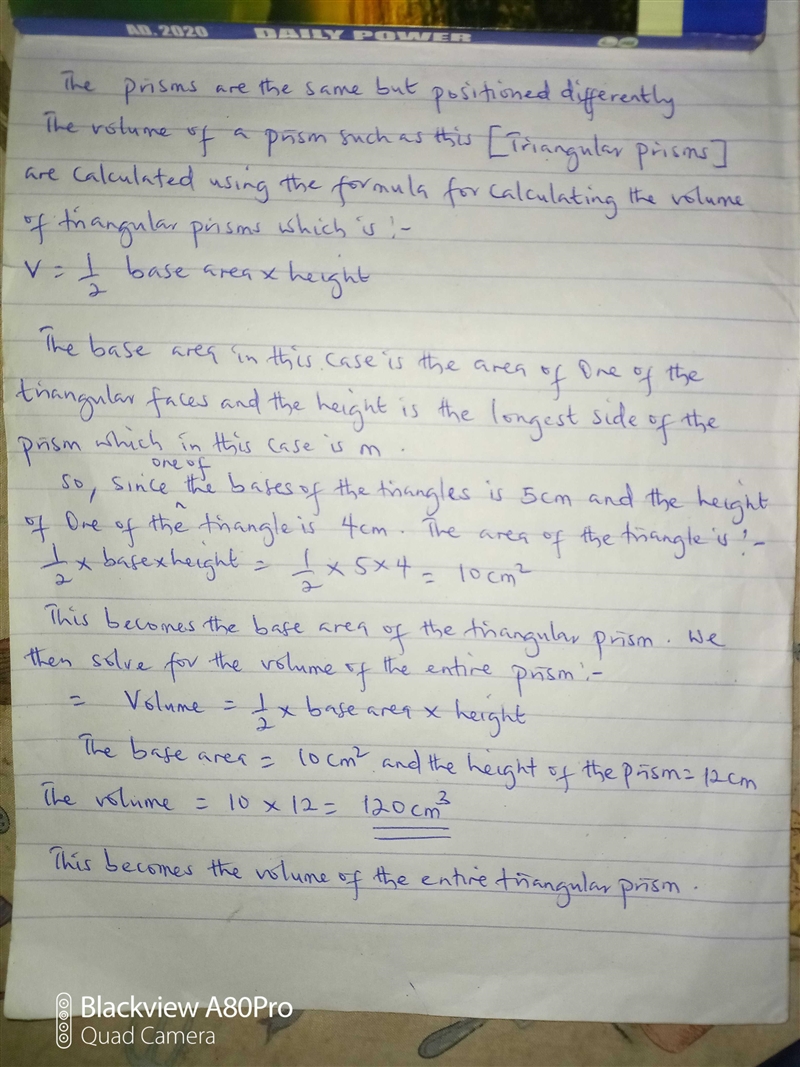 AD. 2020 DAILY POWER
The prisms are the same but positioned differently
The volume of a prism such as this [Triangular prisms]
are calculated using the formula for calculating the volume
of triangular prisms which is :-
V = 1/2 base area x height
The base area in this case is the area of One of the
triangular faces and the height is the longest side of the
prism which in this case is m.
so, since one of the bases of the triangles is 5cm and the height
of One of the triangle is 4cm. The area of the triangle is :-
1/2 x base x height = 1/2 x 5 x 4 = 10cm²
This becomes the base area of the triangular prism. We
then solve for the volume of the entire prism :-
= Volume = 1/2 x base area x height
The base area = 10cm² and the height of the prism = 12cm
The volume = 10 x 12 = 120cm³
This becomes the volume of the entire triangular prism.
Blackview A80Pro
Quad Camera